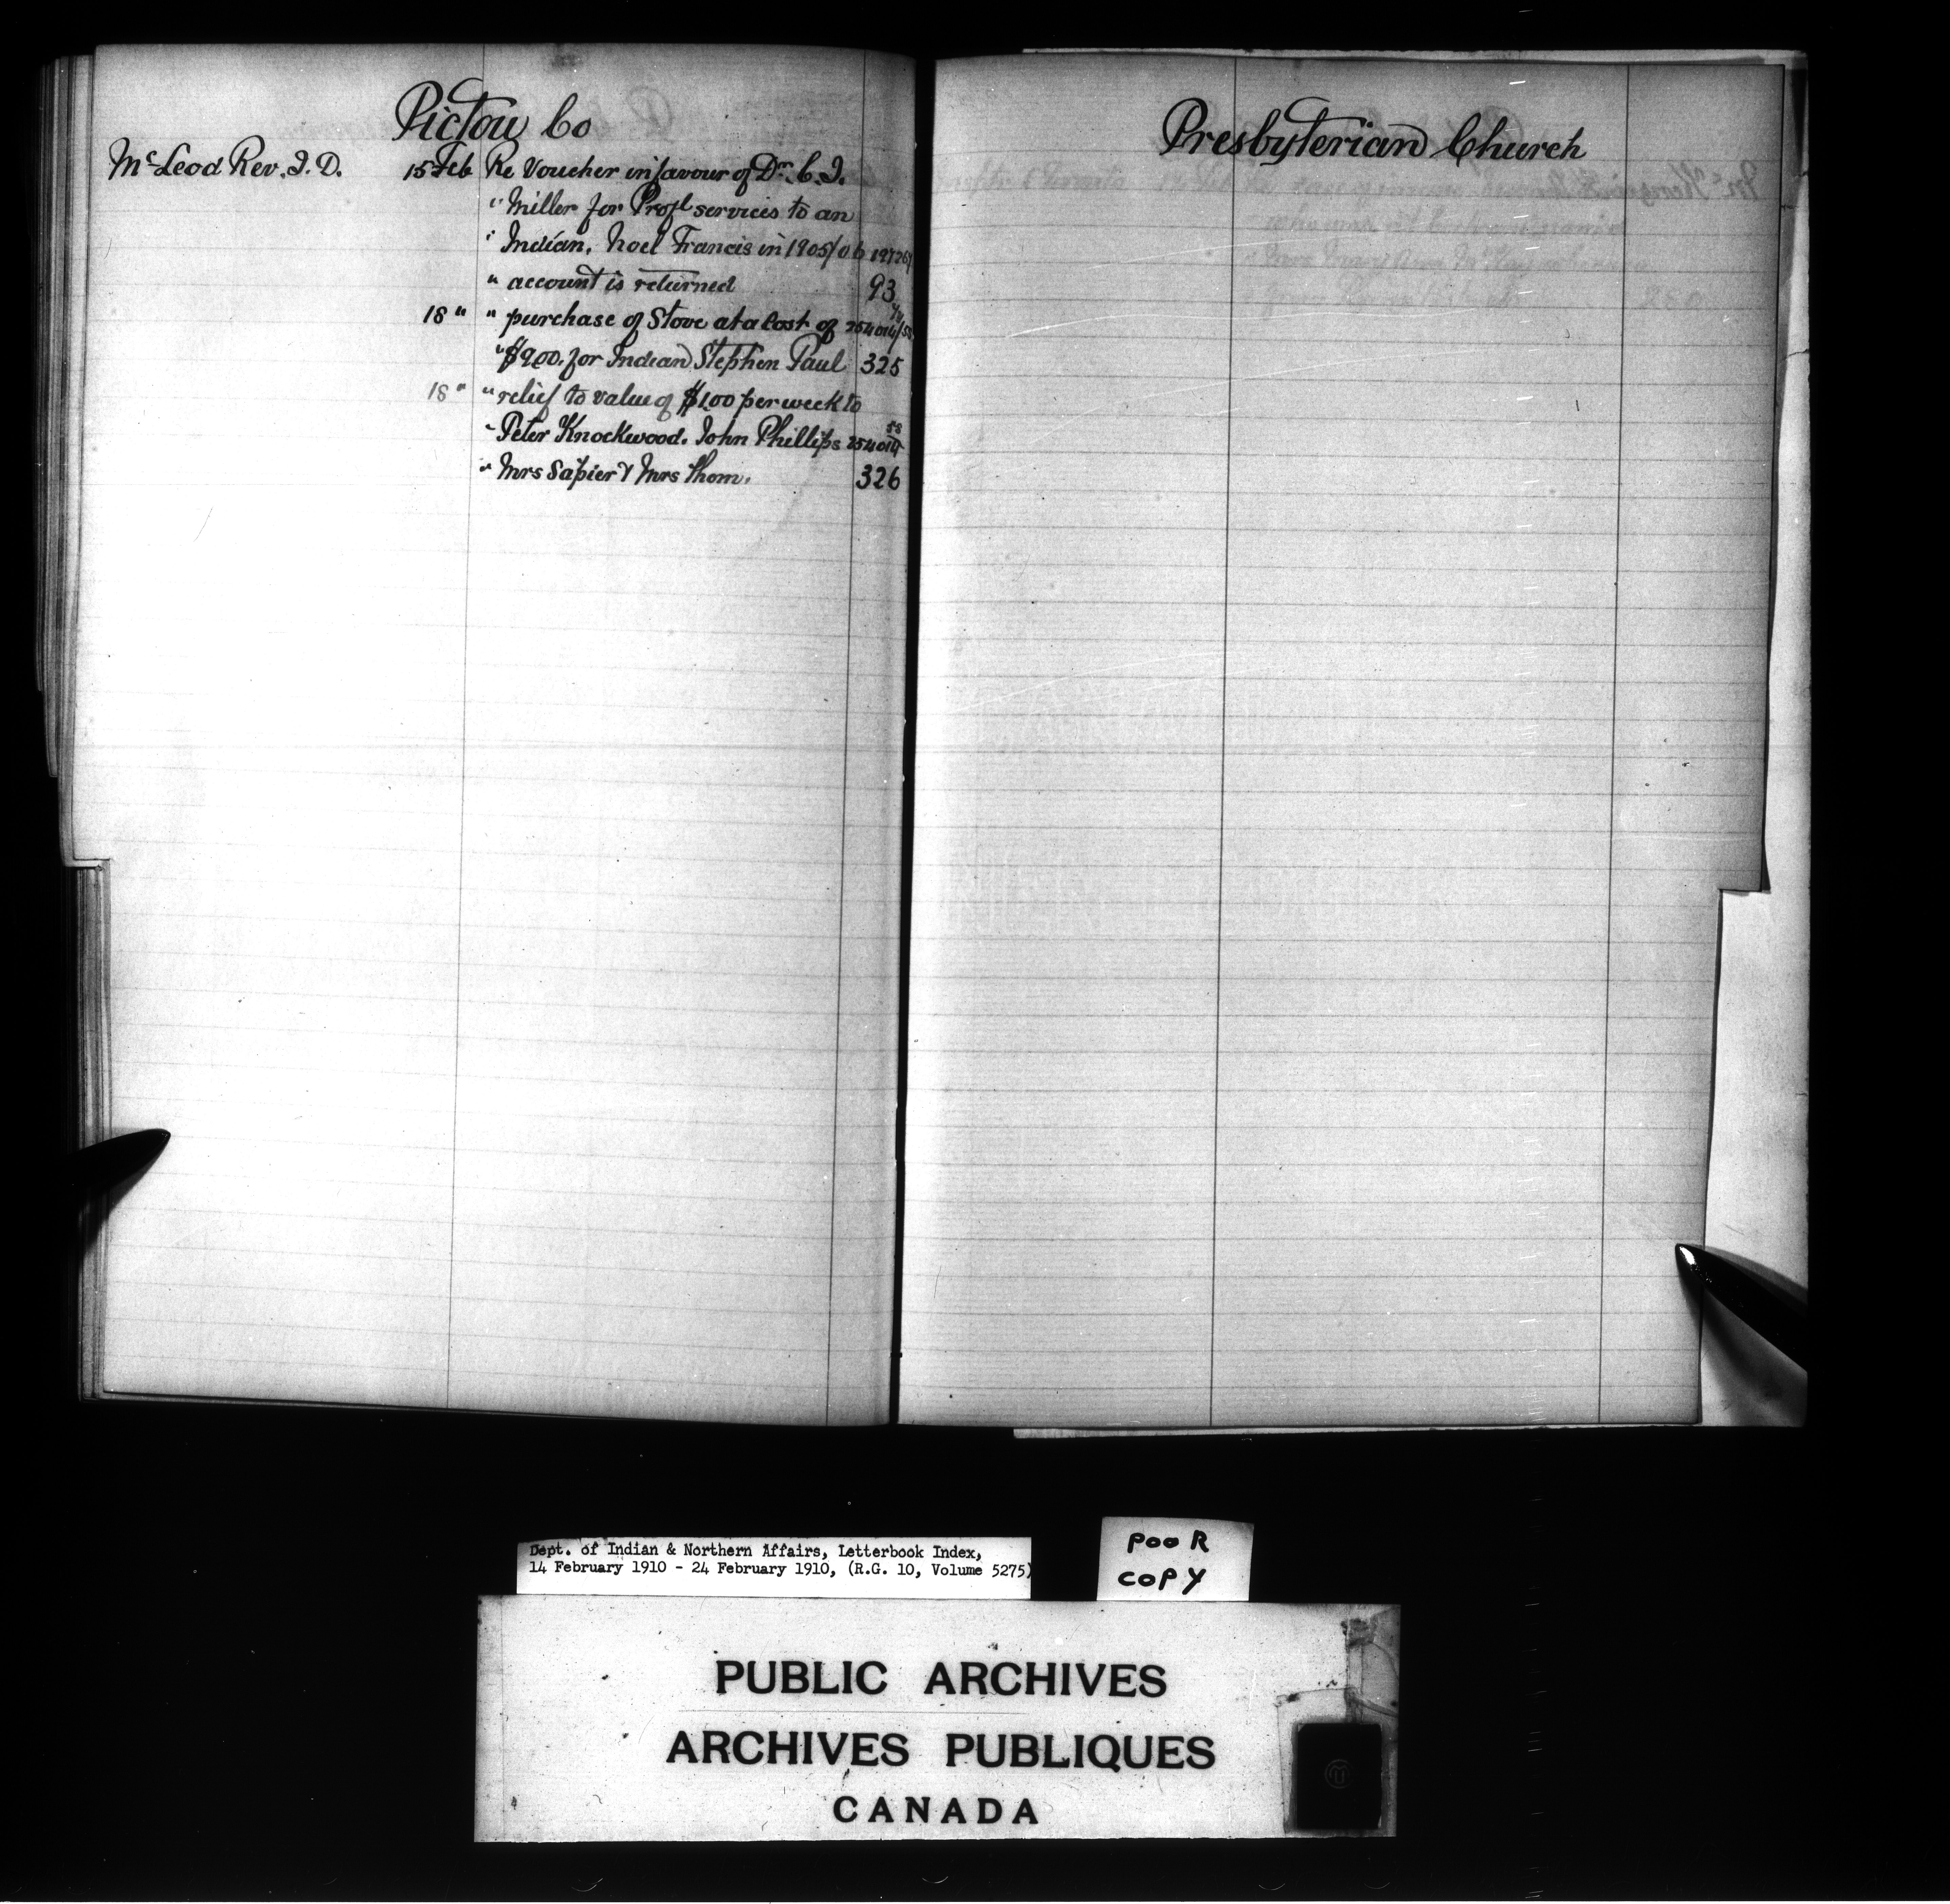 Pictou Co
McLeod Rev. J. D. 15 Feb Re Voucher in favour of Dr. C. J.
" Miller for Profl services to an
" Indian, Noel Francis in 1905/06
" account is returned 93
18 " " purchase of Stove at a Cost of 254014/
" $9.00. for Indian Stephen Paul 325
18 " " relief to value of $1.00 per week to
" Peter Knockwood. John Phillips 254014
" Mrs Sapier & Mrs Thom. 326
Presbyterian Church
Dept. of Indian & Northern Affairs, Letterbook Index,
14 February 1910 - 24 February 1910, (R.G. 10, Volume 5275)
POOR
COPY
PUBLIC ARCHIVES
ARCHIVES PUBLIQUES
CANADA